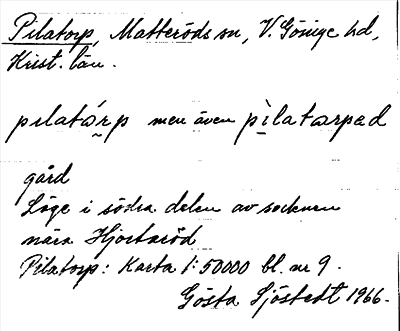 Pilatorp, Matteröds sn, V. Göinge hd,
Krist. län.
pılatárp men även pìlatarpəd
gård
Läge i södra delen av socknen
nära Hjortaröd
Pilatorp: Karta 1:50000 bl. nr 9.
Gösta Sjöstedt 1966.